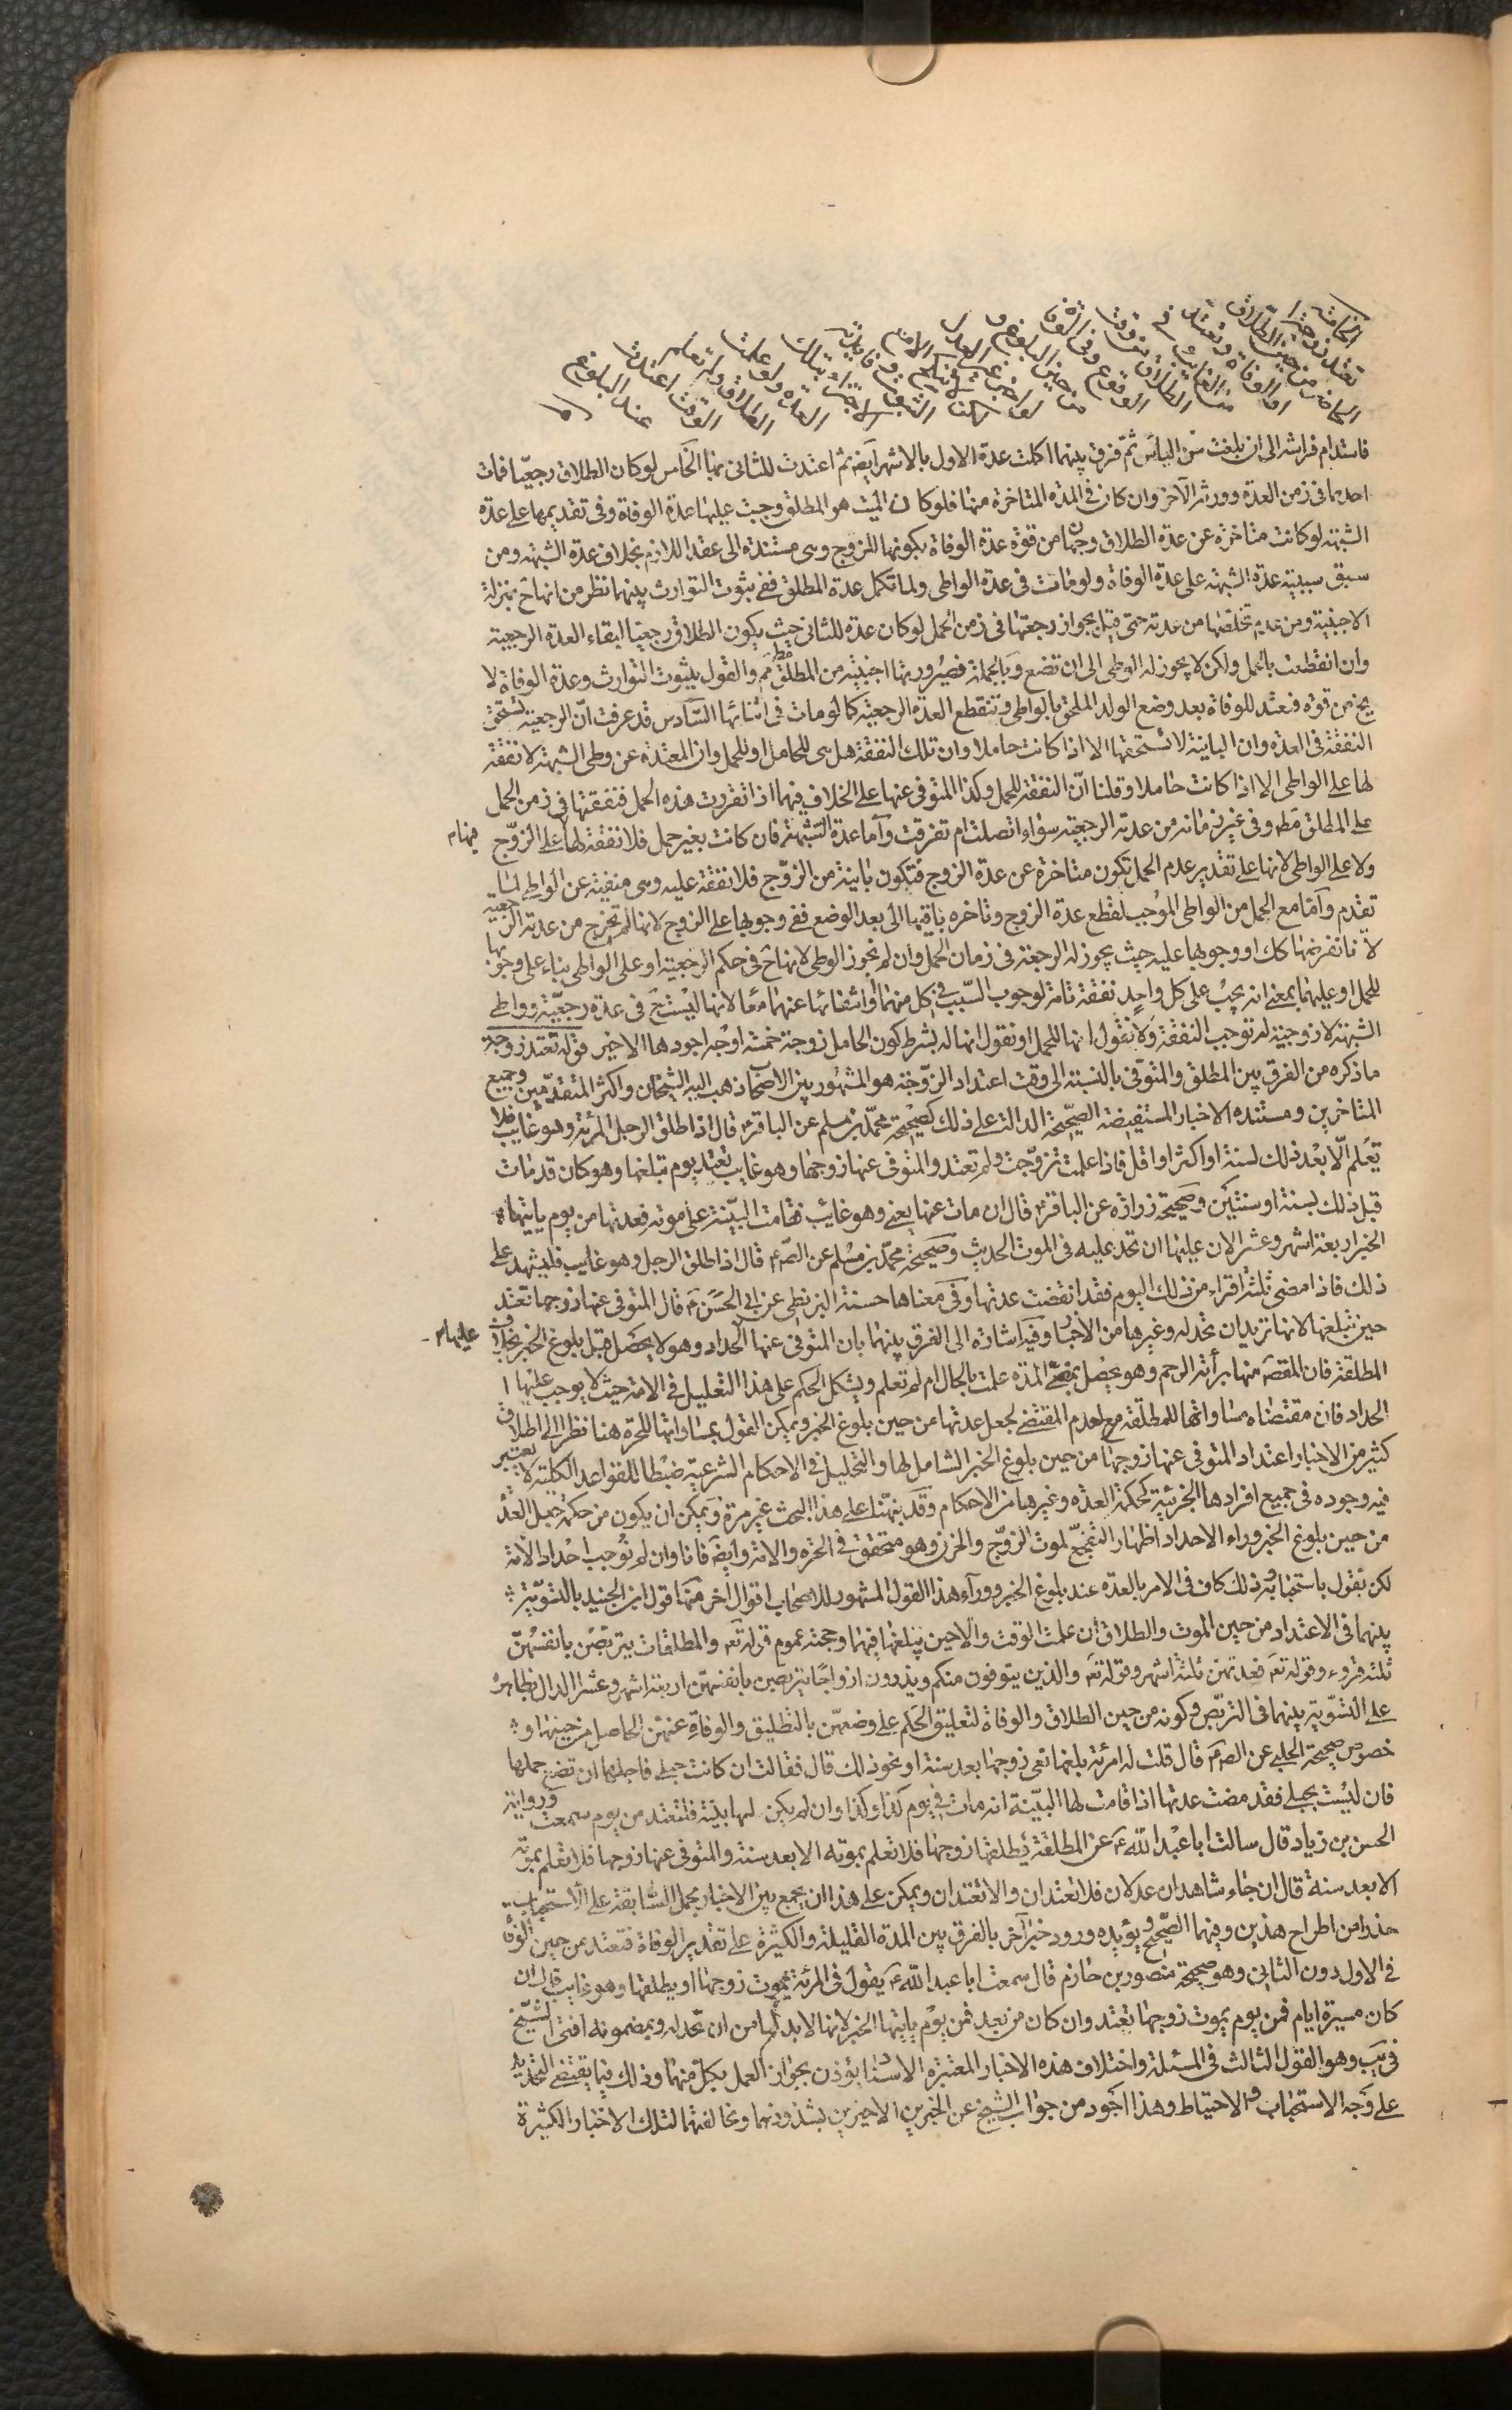 الخامسة
تعتد زوجة
الحاضر من حين الطلاق
او الوفاة وتعتد
من الغايب في
الطلاق من وقت
الوقوع وفي الوفاة
من حين البلوغ و
لو اخبر غير العدل
لكن لا تنكح الا مع
الثبوت وفايدته
الاجتزاء بتلك
العدة ولو علمت
الطلاق ولم تعلم
الوقت اعتدت
عند البلوغ
فاستدام فراشه الى ان بلغت سن الياس ثم فرق بينهما اكملت عدة الاول بالاشهر ايضا ثم اعتدت للثانى بها الخامس لو كان الطلاق رجعيا فمات
احدهما فى زمن العدة وورثه الآخر وان كان فى المدة المتاخرة منها فلو كان الميت هو المطلق وجبت عليها عدة الوفاة وفى تقديمها على عدة
الشبهة لو كانت متاخرة عن عدة الطلاق وجهان من قوة عدة الوفاة بكونها للزوج وهى مستندة الى عقد اللازم بخلاف عدة الشبهة ومن
سبق سببية عدة الشبهة على عدة الوفاة ولو ماتت فى عدة الواطى ولما تكمل عدة المطلق ففى ثبوت التوارث بينهما نظر من انهاح بمنزلة
الاجنبية ومن عدم تخلصها من عدته حتى قيل بجواز رجعتها فى زمن الحمل لو كان عدة للثانى حيث يكون الطلاق رجعيا لبقاء العدة الرجعية
وان انقطعت بالحمل ولكن لا يجوز له الوطى الى ان تضع وبالجملة فصيرورتها اجنبية من المطلق مط مم والقول بثبوت التوارث وعدة الوفاة لا
يخ من قوة فتعتد للوفاة بعد وضع الولد الملحق بالواطى وتنقطع العدة الرجعية كما لو مات فى اثنائها السادس قد عرفت ان الرجعية تستحق
النفقة فى العدة وان الباينة لا تستحقها الا اذا كانت حاملا وان تلك النفقة هل هى للحامل او للحمل وان المعتدة عن وطى الشبهة لا نفقة
لها على الواطى الا اذا كانت حاملا وقلنا ان النفقة للحمل وكذا المتوفى عنها على الخلاف فيهما اذا تقررت هذه الحمل فنفقتها فى زمن الحمل
على المطلق مط وفى غير زمانه من عدته الرجعية سواء اتصلت ام تفرقت واما عدة الشبهة فان كانت بغير حمل فلا نفقة لها على الزوج
فيها م
ولا على الواطى لانها على تقدير عدم الحمل تكون متاخرة عن عدة الزوج فتكون باينة من الزوج فلا نفقة عليه وهى منفية عن الواطى لما
تقدم واما مع الحمل من الواطى الموجب لقطع عدة الزوج وتاخره باقيها الى بعد الوضع ففى وجوبها على الزوج لانها لم تخرج من عدته الرجعية
لانا نفرضها كك او وجوبها عليه حيث يجوز له الرجعة فى زمان الحمل وان لم نجوز الوطى لانهاح فى حكم الرجعية او على الواطى بناء على وجوبها
للحمل او عليهما بمعنى انه يجب على كل واحد نفقة تامة لوجوب السبب فى كل منهما او انتفائها عنهما معا لانها ليست ح فى عدة رجعية وواطى
الشبهة لا زوجية له توجب النفقة ولا نقول انها للحمل او نقول انها له بشرط كون الحامل زوجة خمسة اوجه اجودها الاخير قوله تعتد زوجة
ما ذكره من الفرق بين المطلق والمتوفى بالنسبة الى وقت اعتداد الزوجة هو المشهور بين الاصحاب ذهب اليه الشيخان واكثر المتقدمين وجميع
المتاخرين ومستنده الاخبار المستفيضة الصحيحة الدالة على ذلك كصحيحة محمد بن مسلم عن الباقر ع قال اذا طلق الرجل المرئة وهو غايب فلا
تعلم الا بعد ذلك لسنة او اكثر او اقل فاذا علمت تزوجت ولم تعتد والمتوفى عنها زوجها وهو غايب تعتد يوم تبلغها وهو كان قد مات
قبل ذلك بسنة او سنتين وصحيحة زرارة عن الباقر ع قال ان مات عنها يعنى وهو غائب فقامت البينة على موته فعدتها من يوم ياتيها
الخبر اربعة اشهر وعشر الان عليها ان تحد عليه فى الموت الحديث وصحيحة محمد بن مسلم عن الص ع قال اذا طلق الرجل وهو غايب فليشهد على
ذلك فاذا مضى ثلثة اقراء من ذلك اليوم فقد انقضت عدتها وفى معناها حسنة البزنطى عن ابى الحسن ع قال المتوفى عنها زوجها تعتد
حين تبلغها لانها تريد ان تحد له وغيرها من الاخبار وفيه اشارة الى الفرق بينهما بان المتوفى عنها الحداد وهو لا يحصل قبل بلوغ الخبر بخلاف
عليها م
المطلقة فان المقصد منها برأئة الرحم وهو يحصل بمضى المدة علمت بالحال ام لم تعلم ويشكل الحكم على هذا التعليل فى الامة حيث لا يوجب عليها
الحداد فان مقتضاه مساواتها للمطلقة مع لعدم المقتضى لجعل عدتها من حين بلوغ الخبر ويمكن القول بمساواتها للحرة هنا نظرا الى اطلاق
كثير من الاخبار اعتداد المتوفى عنها زوجها من حين بلوغ الخبر الشامل لها والتعليل فى الاحكام الشرعية ضبطا للقواعد الكلية لا يعتبر
فيه وجوده فى جميع افرادها الجزئية كحكمة العدة وغيرها من الاحكام وقد نبهنا على هذا البحث غير مرة ويمكن ان يكون من حكمة جعل العدة
من حين بلوغ الخبر وراء الاحداد اظهار التفجع لموت الزوج والحزن وهو متحقق فى الحرة والامة وايضا فانا وان لم نوجب احداد الامة
لكن نقول باستحبابه وذلك كاف فى الامر بالعدة عند بلوغ الخبر ووراء هذا القول المشهور للاصحاب اقوال اخر منها قول ابن الجنيد بالتسوية
بينهما فى الاعتداد من حين الموت والطلاق ان علمت الوقت والا حين يبلغها فيهما وحجته عموم قوله تع والمطلقات يتربصن بانفسهن
ثلثة قروء وقوله تع فعدتهن ثلثة اشهر وقوله تع والذين يتوفون منكم ويذرون ازواجا يتربصن بانفسهن اربعة اشهر وعشرا الدال بظاهره
على التسوية بينهما فى التربص وكونه من حين الطلاق والوفاة لتعليق الحكم على وصفهن بالتطليق والوفاة عنهن الحاصل من حينها و
خصوص صحيحة الحلبى عن الص ع قال قلت له امرئة بلغها نعى زوجها بعد سنة او نحو ذلك قال فقالت ان كانت حبلى فاجلها ان تضع حملها
فان ليست بحبلى فقد مضت عدتها اذا قامت لها البينة انه مات فى يوم كذا وكذا وان لم يكن لها بينة فلتعتد من يوم سمعت ورواية
الحسن بن زياد قال سالت ابا عبد الله ع عن المطلقة يطلقها زوجها فلا تعلم بموته الا بعد سنة والمتوفى عنها زوجها فلا تعلم بموته
الا بعد سنة قال ان جاء شاهدان عدلان فلا تعتدان والا تعتدان ويمكن على هذا ان يجمع بين الاخبار بحمل السابقة على الاستحباب
حذرا من اطراح هذين وفيهما الصحيح ويؤيده ورود خبر آخر بالفرق بين المدة القليلة والكثيرة على تقدير الوفاة فتعتد من حين الوفاة
فى الاول دون الثانى وهو صحيحة منصور بن حازم قال سمعت ابا عبد الله ع يقول فى المرئة يموت زوجها او يطلقها وهو غايب قال ان
كان مسيرة ايام فمن يوم يموت زوجها تعتد وان كان من بعد فمن يوم ياتيها الخبر لانها لا بد لها من ان تحد له وبمضمونه افتى الشيخ
فى يب وهو القول الثالث فى المسئلة واختلاف هذه الاخبار المعتبرة الاسناد يؤذن بجواز العمل بكل منها وذلك فيما يقتضى التحديد
على وجه الاستحباب والاحتياط وهذا اجود من جواب الشيخ عن الخبرين الاخيرين بشذوذهما ومخالفتهما لتلك الاخبار الكثيرة